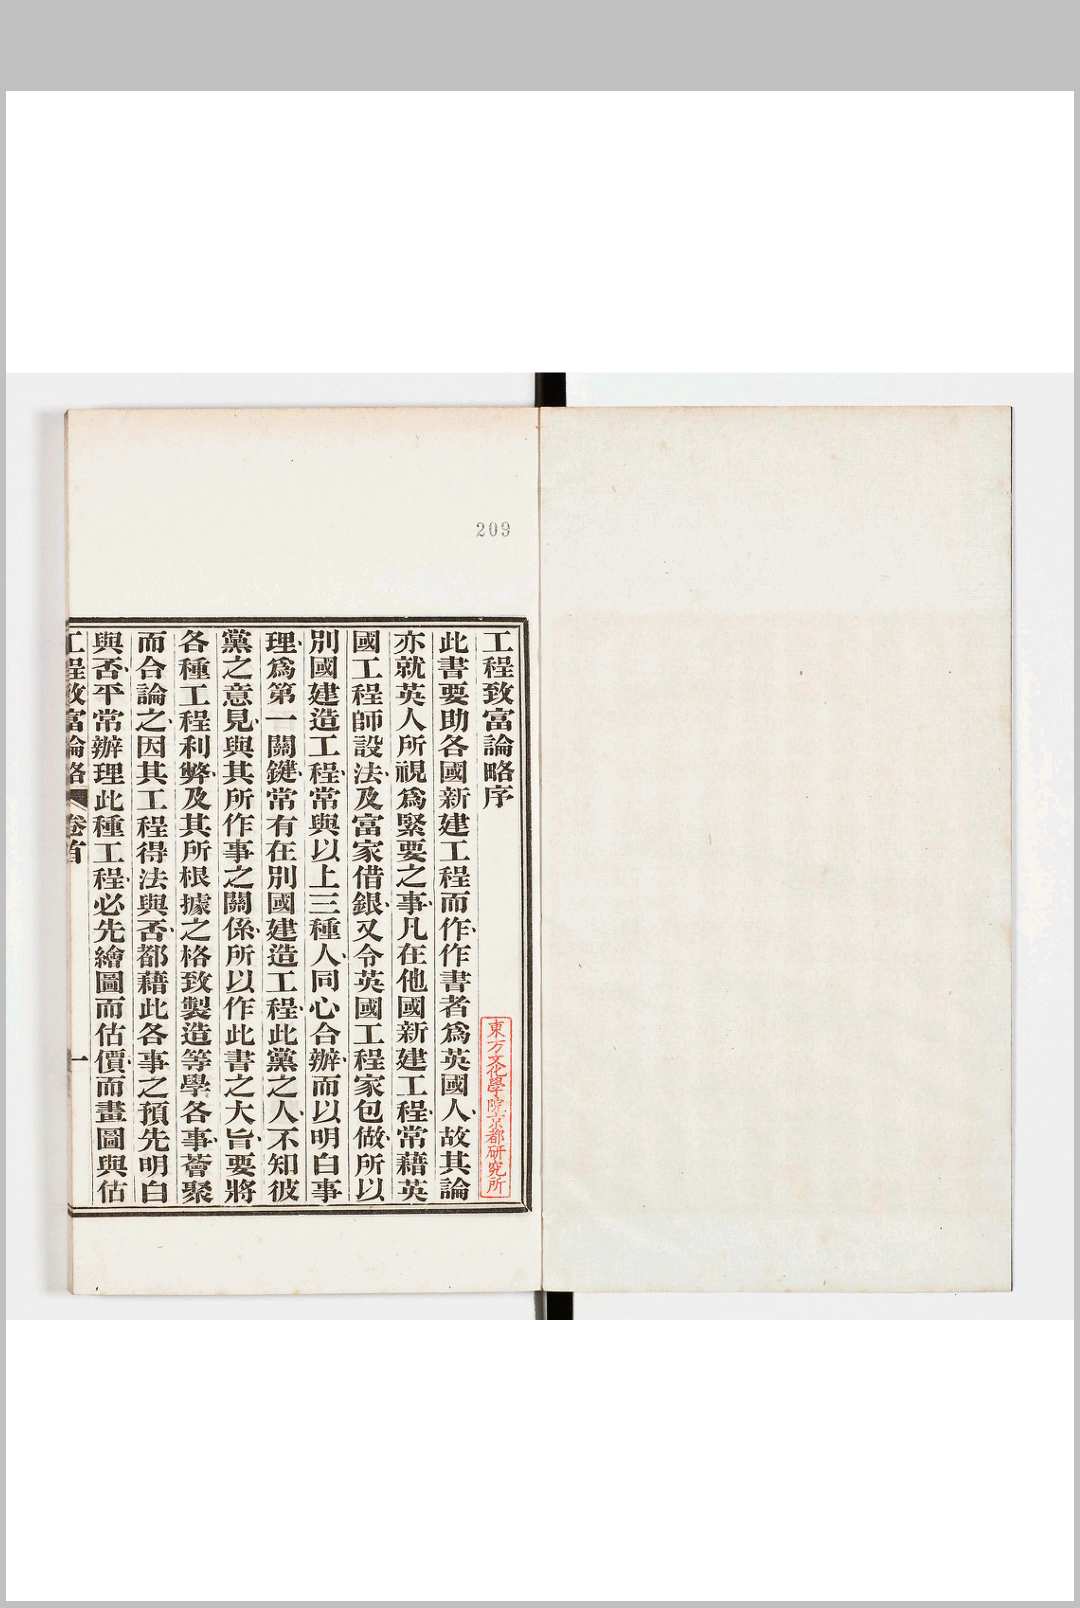 209
工程致富論略序
東方文化學院京都研究所
此書要助各國新建工程而作作書者爲英國人故其論
亦就英人所視爲緊要之事凡在他國新建工程常藉英
國工程師設法及富家借銀又令英國工程家包做所以
別國建造工程常與以上三種人同心合辦而以明白事
理爲第一關鍵常有在別國建造工程此黨之人不知彼
黨之意見與其所作事之關係所以作此書之大旨要將
各種工程利弊及其所根據之格致製造等學各事薈聚
而合論之因其工程得法與否都藉此各事之預先明白
與否平常辦理此種工程必先繪圖而估價而畫圖與估
工程致富論略 卷首 一